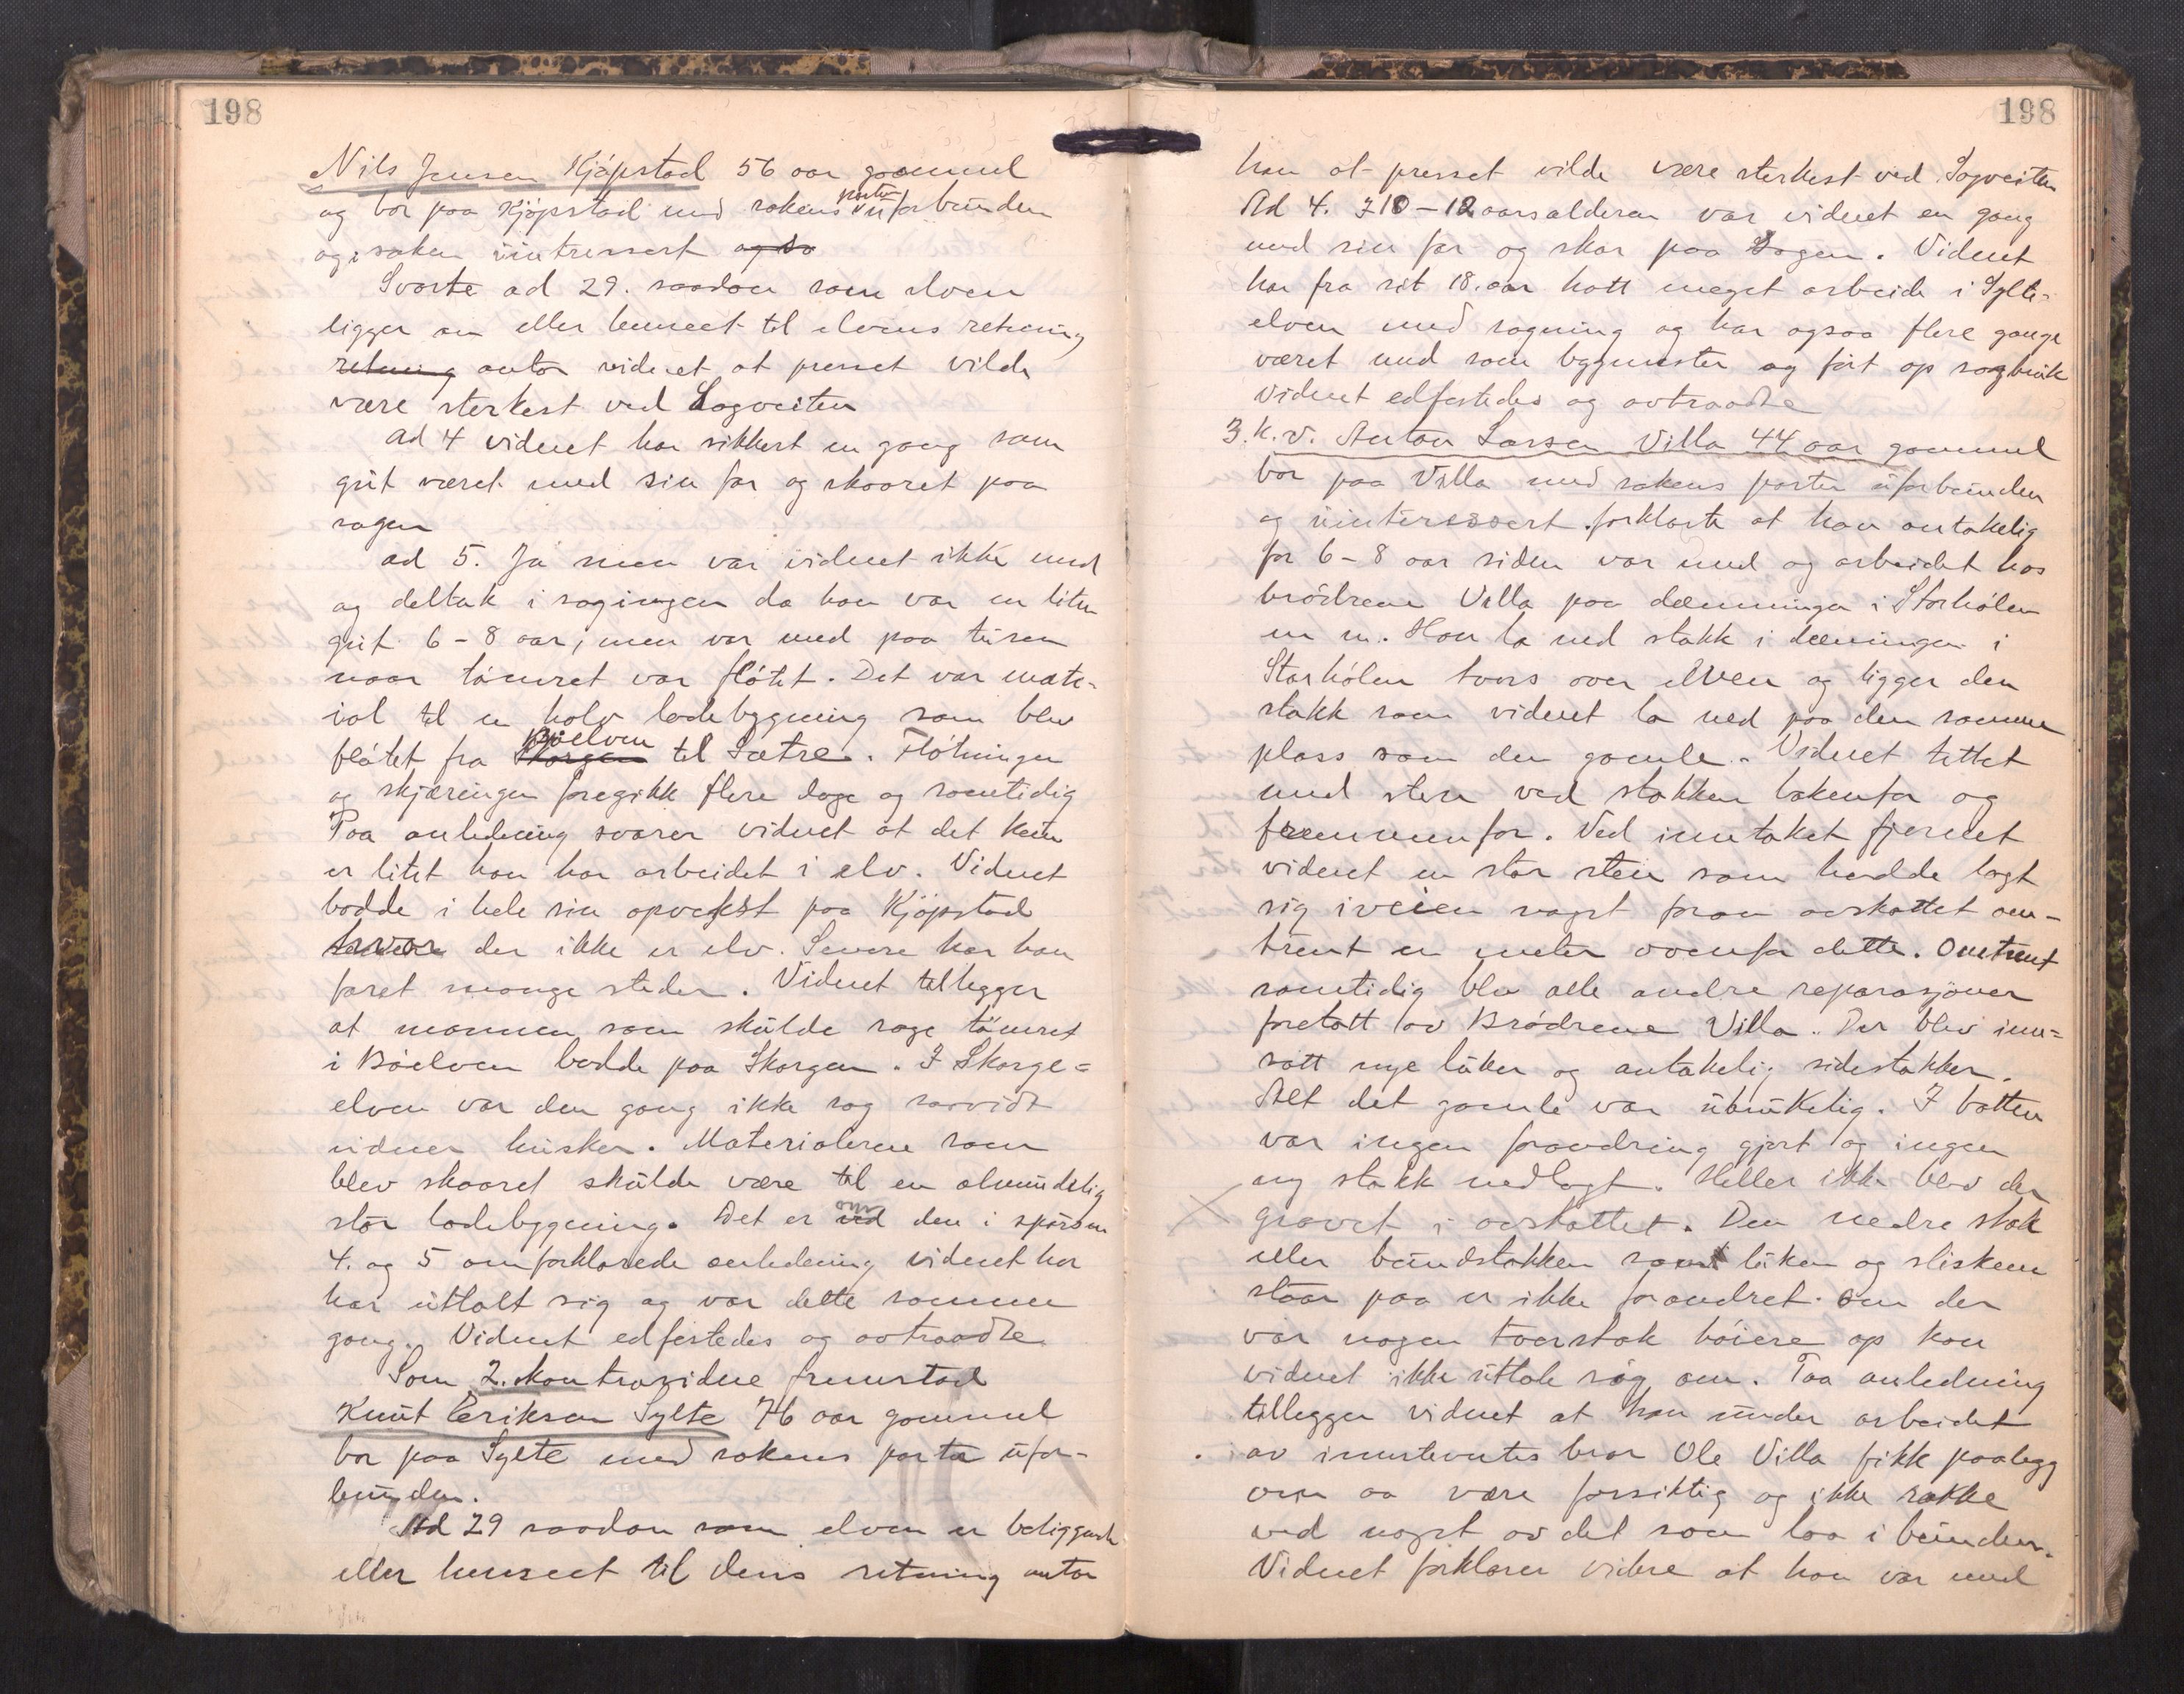 198
Nils Jensen Kjøpstad 56 aar gammel
og bor paa Kjøpstad med sakens parter uforbunden
og i saken uintressert og so
Svarte ad 29. saadan som elven
ligger an eller henseet til elvens retning
retning antar vidnet at presset vilde
være sterkest ved Sagveiten
ad 4 vidnet har sikkert en gang som
gut været med sin far og skaaret paa
sagen
ad 5. Ja men var vidnet ikke med
og deltok i sagingen da han var en liten
gut 6-8 aar, men var med paa turen
naar tømret var fløtet. Det var mate-
ial til en halv ladebygning som blev
fløtet fra Skorgen Bøelven til Sætre. Fløtningen
og skjæringen foregikk flere dage og samtidig
Paa anledning svarer vidnet at det kun
er litet han har arbeidet i elv. Vidnet
bodde i hele sin opvekst paa Kjøpstad
hvor der ikke er elv. Senere har han
faret mange steder. Vidnet tillegger
at mannen som skulde sage tømret
i Bøelven bodde paa Skorgen. I Skorge=
elven var den gang ikke sag saavidt
vidner husker. Materialerne som
blev skaaret skulde være til en almindelig
stor ladebygning. Det er ved om den i spørsm
4. og 5 omforklarede anledning vidnet her
har uttalt sig og var dette samme
gang. Vidnet edfestedes og avtraadte
Som 2. kontravidne fremstod
Knut Eriksen Sylte 76 aar gammel
bor paa Sylte med sakens parter ufor-
bunden.
Ad 29 saadan som elven er beliggende
eller henseet til dens retning antar
198
han at presset vilde være sterkest ved Sagveiten
Ad 4. I 10-12 aarsalderen var vidnet en gang
med sin far og skar paa Sagen. Vidnet
har fra sit 18. aar hatt meget arbeide i Sylte-
elven med sagning og har ogsaa flere gange
været med som bygmester og ført op sagbruk
Vidnet edfestedes og avtraadte
3. k.v. Anton Larsen Villa 44 aar gammel
bor paa Villa med sakens parter uforbunden
og uinteressert forklarte at han antakelig
for 6-8 aar siden var med og arbeidet hos
brødrene Villa paa dæmningen i Storhølen
m m. Han la ned stokk i dæmningen i
Storhølen tvers over elven og ligger den
stokk som vidnet la ned paa den samme
plass som den gamle. Vidnet tettet
med sten ved stokken bakenfor og
fremmenfor. Ved inntaket fjernet
vidnet en stor sten som hadde lagt
sig iveien noget foran avskottet om-
trent en meter ovenfor dette. Omtrent
samtidig blev alle andre reparasjoner
foretatt av Brødrene Villa. Der blev inn=
satt nye luker og antakelig sidestokker.
Alt det gamle var ubrukelig. I botten
var ingen forandring gjort og ingen
ny stokk nedlagt. Heller ikke blev der
gravet i avskottet. Den nedre stok
eller bundstokken samt luken og slisken
staar paa er ikke forandret. Om der
var nogen tverstok høiere op kan
vidnet ikke uttale sig om. Paa anledning
tillegger vidnet at han under arbeidet
av innstevntes bror Ole Villa fikk paalegg
om aa være forsiktig og ikke rokke
ved noget av det som laa i bunden.
Vidnet forklarer videre at han var med